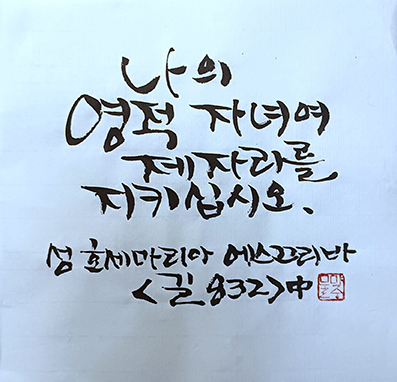 나의
영적 자녀여
제자리를
지키십시오.
성 호세마리아 에스끄리바
<길 832> 中